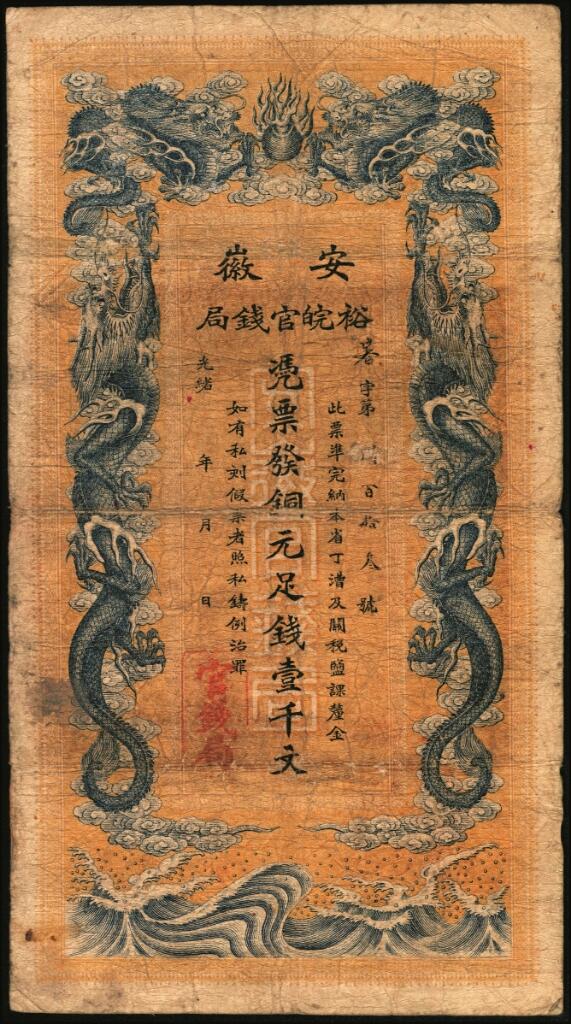 安徽
裕皖官錢局
字第 百拾叁號
此票準完納本省丁漕及關税鹽課釐金
憑票發銅元足錢壹千文
如有私刻假票者照私鑄例治罪
光緒 年 月 日
官錢局